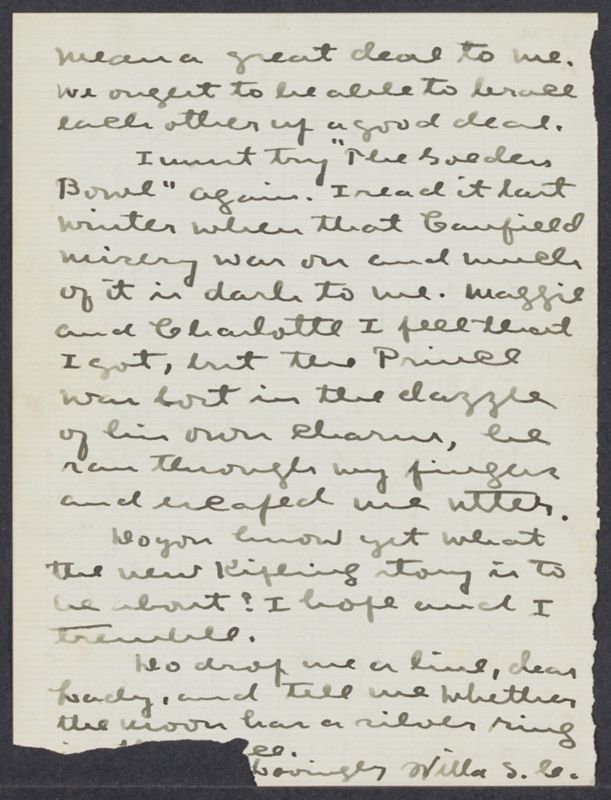 mean a great deal to me.
We ought to be able to brace
each other up a good deal.
I must try "The Golden
Bowl" again. I read it last
winter when that Canfield
misery was on and much
of it is dark to me. Maggie
and Charlotte I feel that
I got, but the Prince
was lost in the dazzle
of his own charms, he
ran through my fingers
and escaped me utter.
Do you know yet what
the new Kipling story is to
be about? I hope and I
tremble.
Do drop me a line, dear
Lady, and tell me whether
the moon has a silver ring
Lovingly Willa S. C.